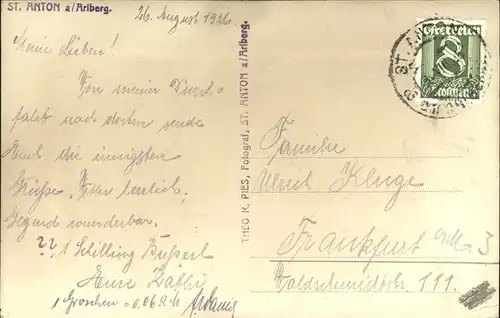 ST. ANTON a/Arlberg.
26. August 1926
Meine Lieben!
Von meiner Durch-
fahrt nach dorten sende
Euch die innigsten
Grüße. Wetter herrlich,
Gegend wunderbar.
?? 1 Schilling Busserl
Eure
1 Groschen =
THEO K. PIES, Fotograf, ST. ANTON a/Arlberg.
Österreich
8
Groschen
ST. ANTON
Familie
Ulrich Kluge
Frankfurt a/M. 3
Waldschmidtstr. 111.